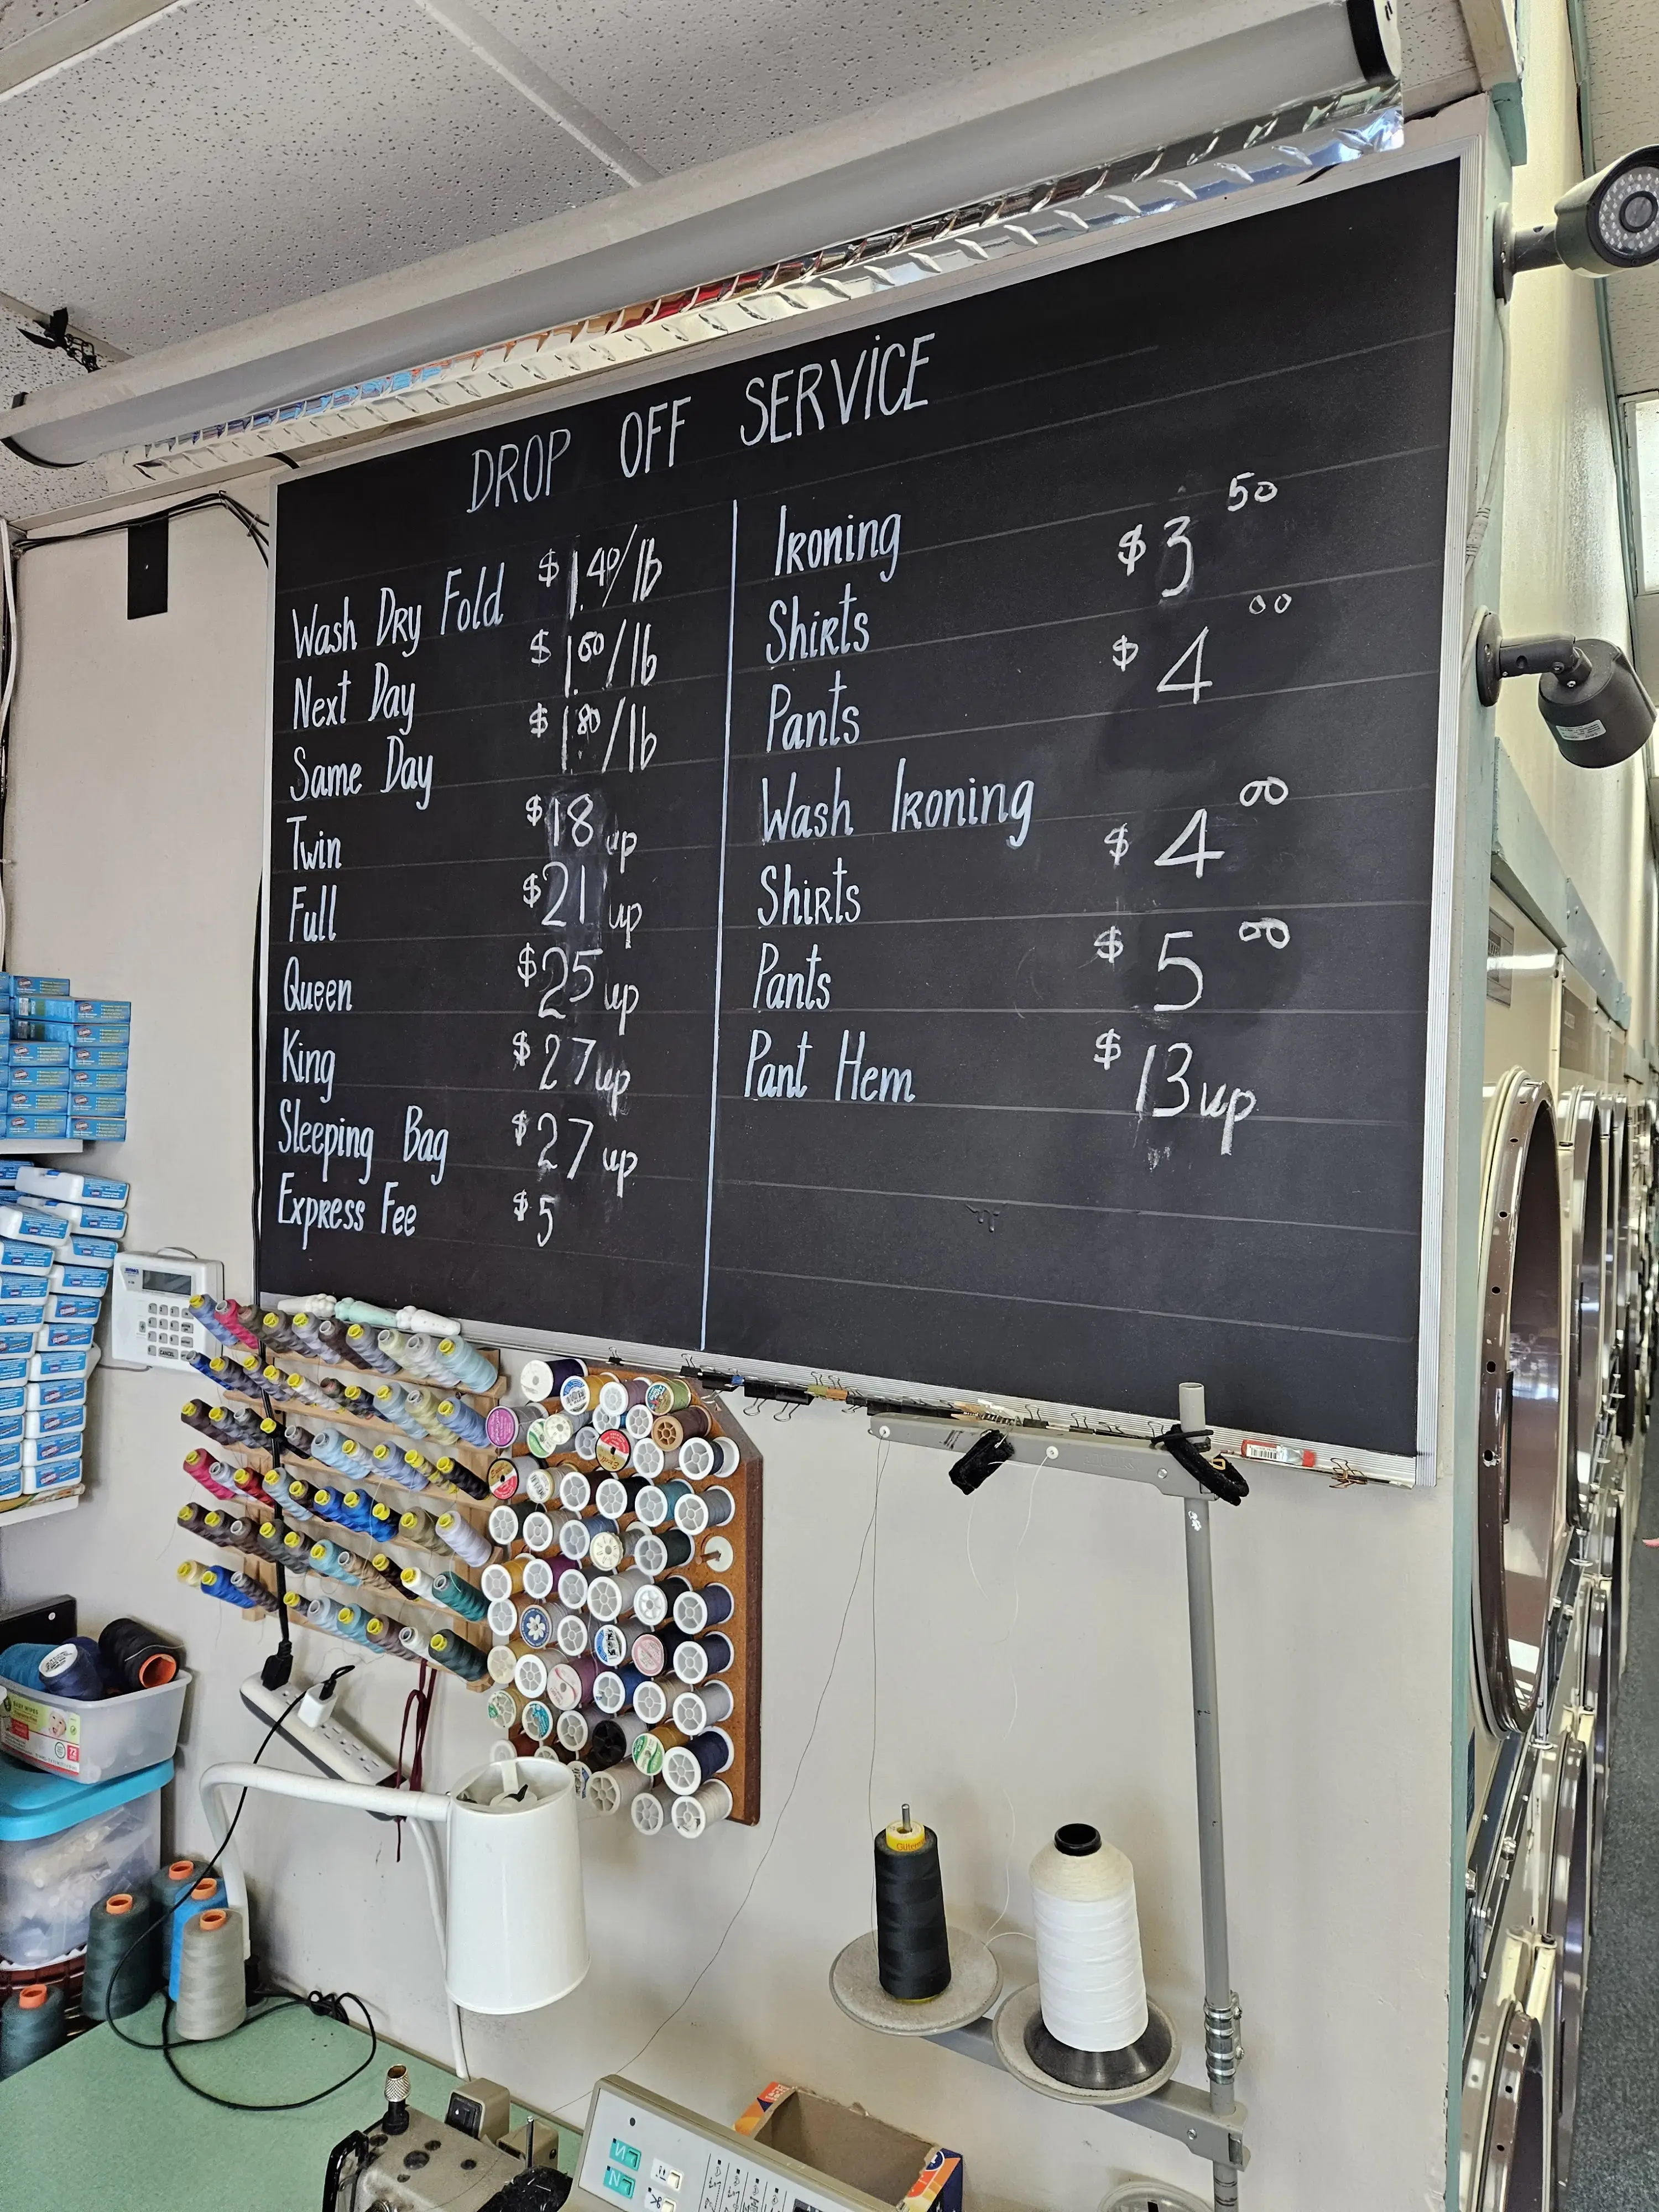 DROP OFF SERVICE
Wash Dry Fold $1.40/lb
Next Day $1.60/lb
Same Day $1.80/lb
Twin $18 up
Full $21 up
Queen $25 up
King $27 up
Sleeping Bag $27 up
Express Fee $5
Ironing
Shirts $3 50
Pants $4 00
Wash Ironing
Shirts $4 00
Pants $5 00
Pant Hem $13 up
CANCEL